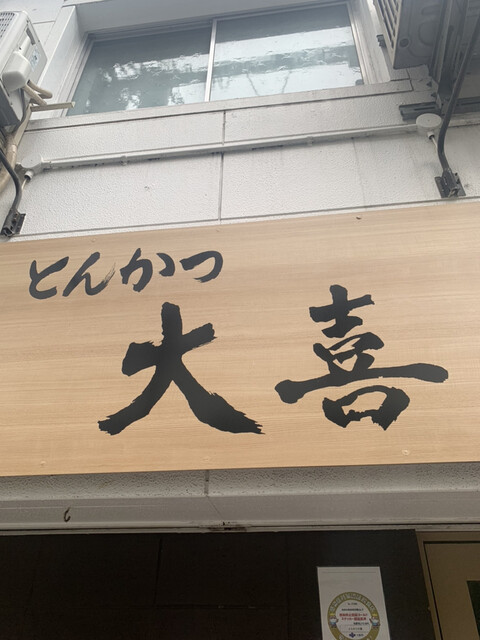 とんかつ
大喜